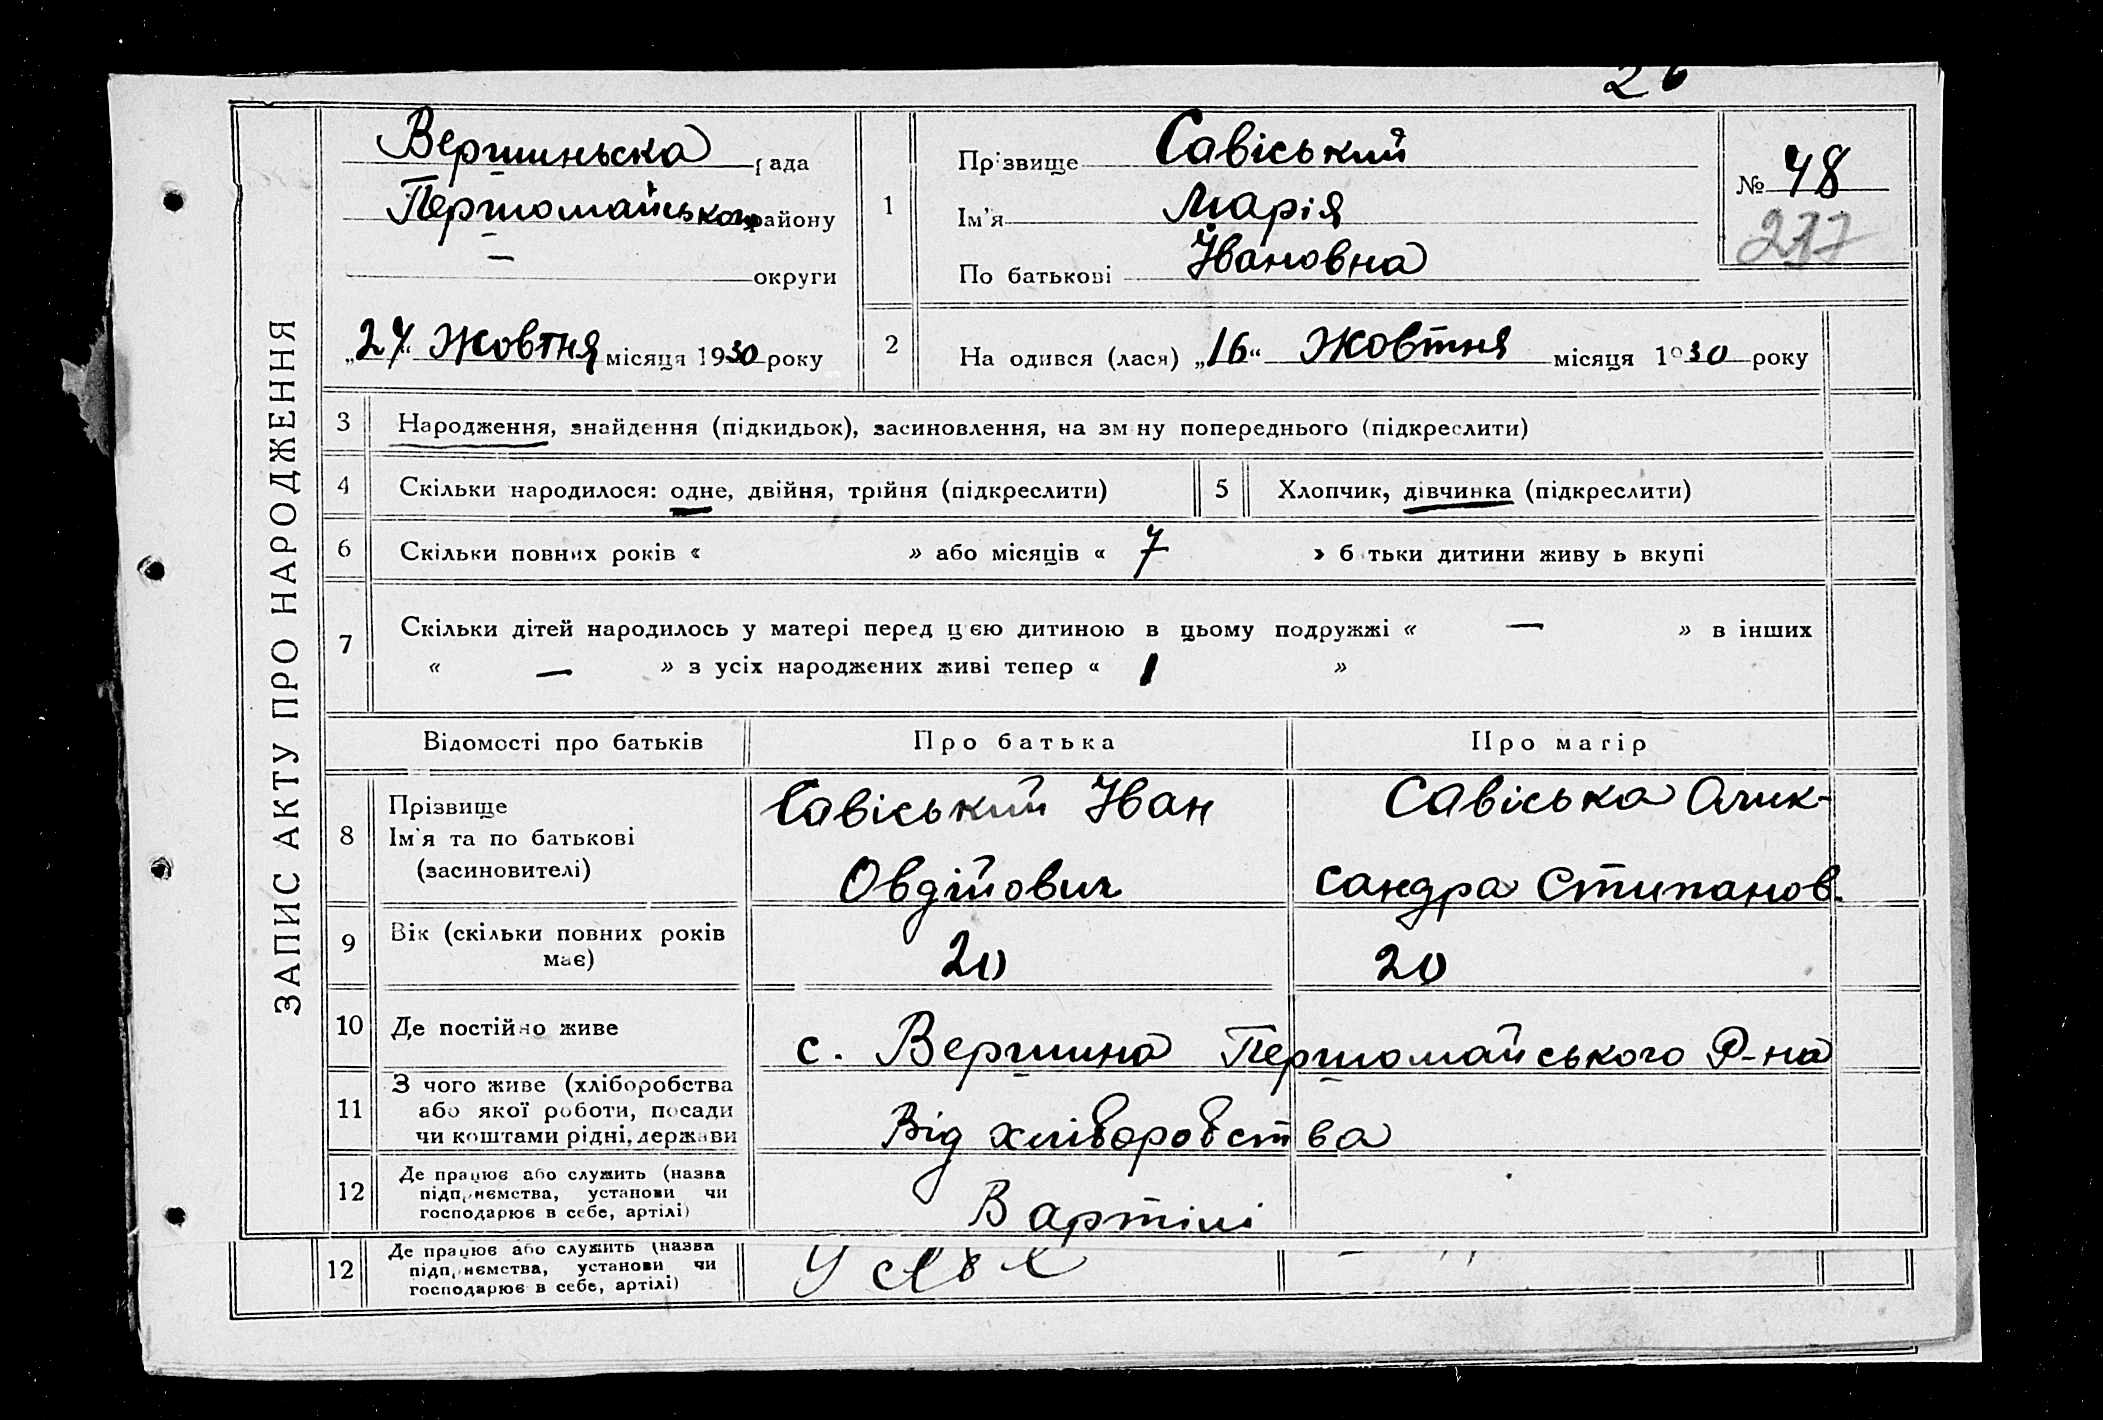 26
ЗАПИС АКТУ ПРО НАРОДЖЕННЯ
Вершиньска рада
Першомайського району
— округи
„27“ Жовтня місяця 1930 року
1
Прізвище Савіський
Ім'я Марія
По батькові Івановна
№ 48
277
2
На одився (лася) „16“ Жовтня місяця 1930 року
3 Народження, знайдення (підкидьок), засиновлення, на зм ну попереднього (підкреслити)
4 Скільки народилося: одне, двійня, трійня (підкреслити)
5 Хлопчик, дівчинка (підкреслити)
6 Скільки повних років « » або місяців « 7 » б тьки дитини живу ь вкупі
7 Скільки дітей народилось у матері перед цією дитиною в цьому подружжі « — » в інших
« — » з усіх народжених живі тепер « 1 »
Відомості про батьків Про батька Про матір
8 Прізвище
Ім'я та по батькові
(засиновителі)
Савіський Іван
Овдійович
Савіська Олик-
сандра Стипанов.
9 Вік (скільки повних років
має)
20 20
10 Де постійно живе с. Вершина Першомайського Р-на
11 З чого живе (хліборобства
або якої роботи, посади
чи коштами рідні, держави
Від хліборобства
12 Де працює або служить (назва
підприємства, установи чи
господарює в себе, артілі)
В артілі
12 Де працює або служить (назва
підприємства, установи чи
господарює в себе, артілі)
У себе